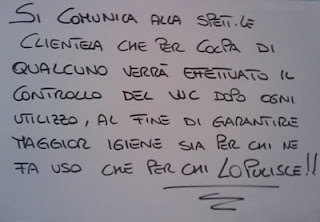 SI COMUNICA ALLA SPETT.LE
CLIENTELA CHE PER COLPA DI
QUALCUNO VERRÀ EFFETTUATO IL
CONTROLLO DEL WC DOPO OGNI
UTILIZZO, AL FINE DI GARANTIRE
MAGGIOR IGIENE SIA PER CHI NE
FA USO CHE PER CHI LO PULISCE!!